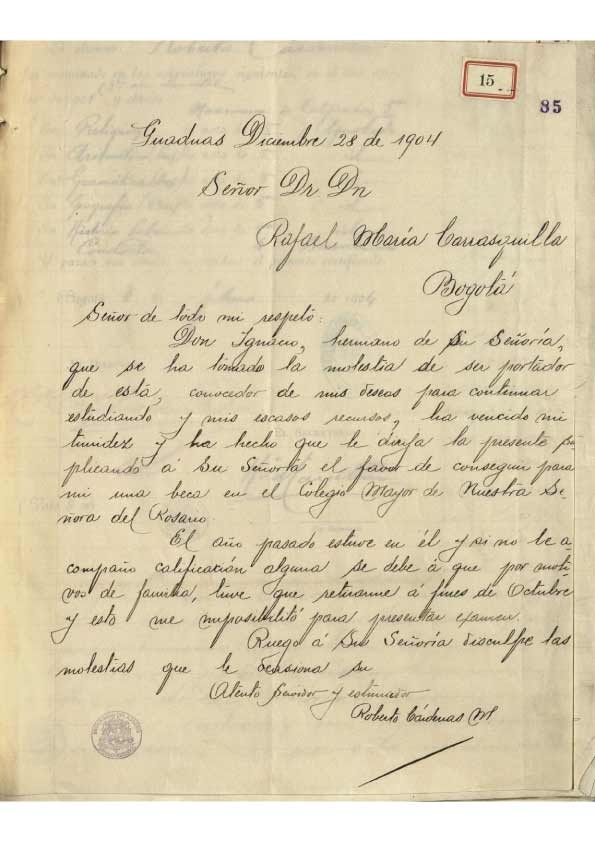 15
85
Guaduas Diciembre 28 de 1904
Señor Dr. Dn
Rafael María Carrasquilla
Bogotá
Señor de todo mi respeto:
Don Ignacio, hermano de Su Señoría,
que se ha tomado la molestia de ser portador
de esta, conocedor de mis deseos para continuar
estudiando y mis escasos recursos, ha vencido mi
timidez y ha hecho que le dirija la presente su-
plicando á Su Señoría el favor de conseguir para
mi una beca en el Colegio Mayor de Nuestra Se-
ñora del Rosario.
El año pasado estuve en él y si no le a-
compaño calificación alguna se debe á que por moti-
vos de familia, tuve que retirarme á fines de Octubre
y esto me imposibilitó para presentar examen.
Ruego á Su Señoría disculpe las
molestias que le ocasiona su
Atento Servidor y estimador
Roberto Cárdenas M.